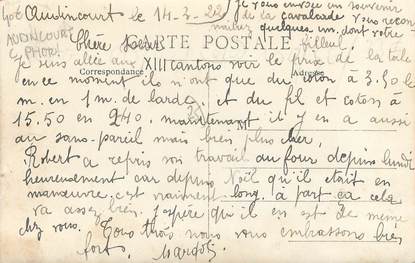 Audincourt le 14-3-22
Je vous envoie un souvenir
de la cavalcade vous recon-
naitrez quelques uns dont votre
filleul.
AUDINCOURT
CARTE POSTALE
Chère
Correspondance
Adresse
Je suis allée aux XIII cantons voir le prix de la toile
en ce moment ils n'ont que du coton à 3.50 le
m. en 1 m. de large et du fil et coton à
15.50 en 240. maintenant il y en a aussi
M
au sans-pareil mais bien plus cher,
Robert a repris son travail au four depuis lundi
heureusement car depuis Noël qu'il était en
manœuvre, c'est vraiment long, à part ça cela
va assez bien. J'espère qu'il en est de même
chez vous. Tous trois nous vous embrassons bien
fort. Margot.